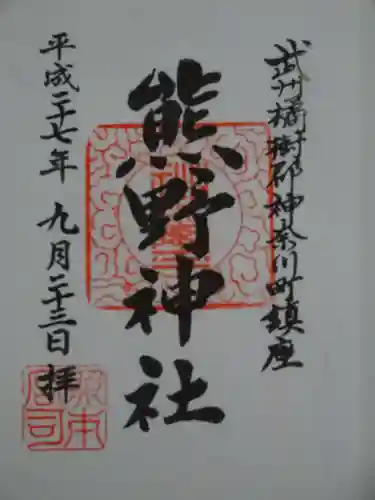 武州橘樹郡神奈川町鎮座
熊野神社
平成二十七年九月二十三日 拝